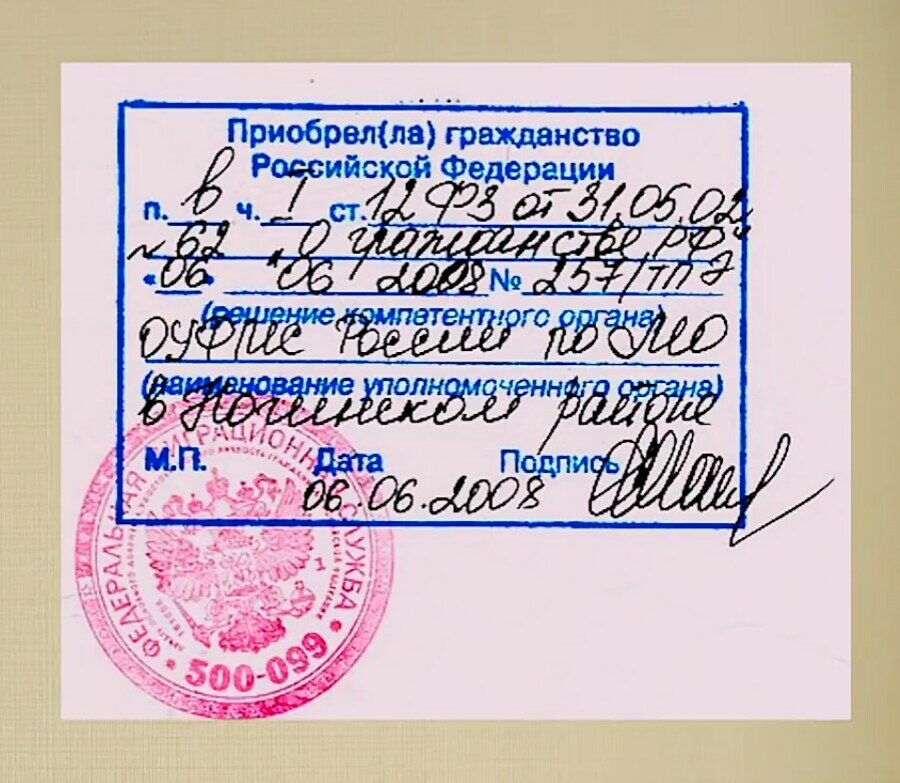 Приобрел(ла) гражданство
Российской Федерации
п. в ч. I ст. 12 ФЗ от 31.05.02
№62 "О гражданстве РФ"
"06" 06 2008 № 257/ТП
(решение компетентного органа)
ОУФМС России по МО
(наименование уполномоченного органа)
в Ногинском районе
М.П. Дата Подпись
06.06.2008
ФЕДЕРАЛЬНАЯ МИГРАЦИОННАЯ СЛУЖБА
* 500-099 *
1